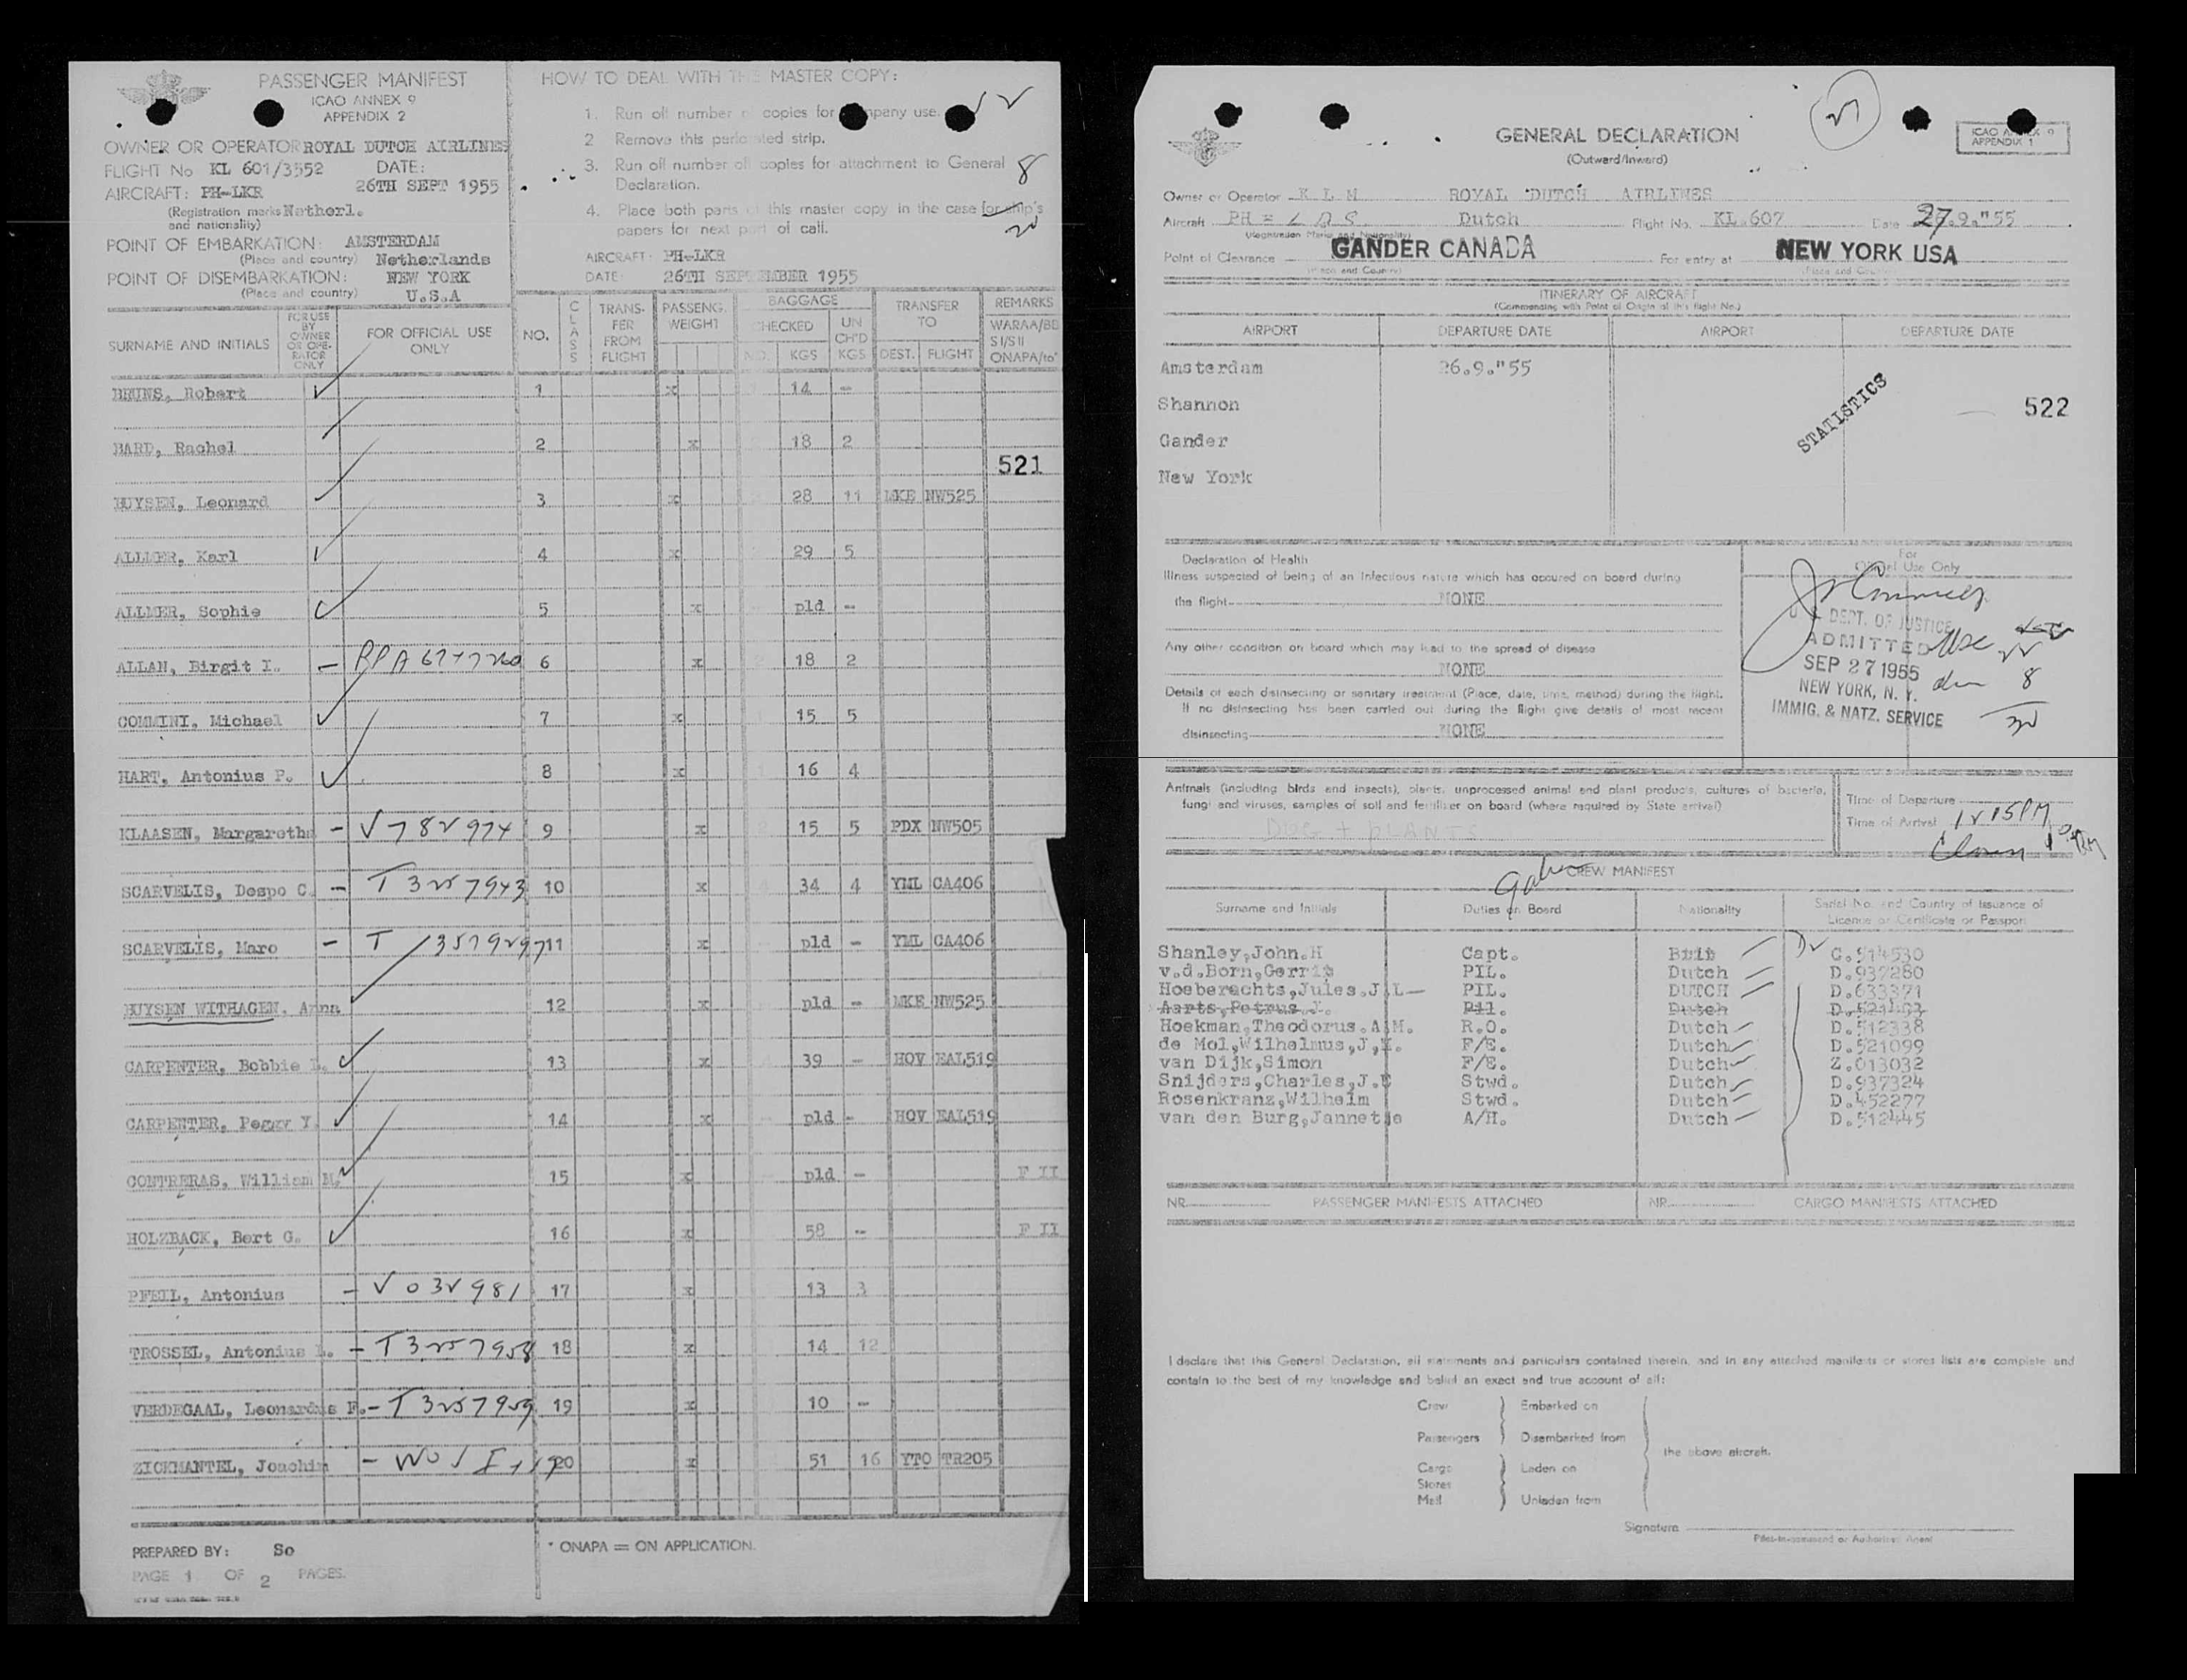 PASSENGER MANIFEST
ICAO ANNEX 9
APPENDIX 2
OWNER OR OPERATOR ROYAL DUTCH AIRLINES
FLIGHT No KL 601/3552 DATE:
AIRCRAFT: PH-LKR 26TH SEPT 1955
(Registration marks and nationality) Netherl.
POINT OF EMBARKATION: AMSTERDAM
(Place and country) Netherlands
POINT OF DISEMBARKATION: NEW YORK
(Place and country) U.S.A
HOW TO DEAL WITH THIS MASTER COPY:
1. Run off number of copies for company use.
2 Remove this perforated strip.
3. Run off number of copies for attachment to General
Declaration.
8
4. Place both parts of this master copy in the case for ship's
papers for next port of call.
AIRCRAFT: PH-LKR
DATE: 26TH SEPTEMBER 1955
SURNAME AND INITIALS
FOR USE BY OWNER OR OPERATOR ONLY
FOR OFFICIAL USE ONLY
NO.
CLASS
TRANSFER FROM FLIGHT
PASSENG. WEIGHT
BAGGAGE
CHECKED NO. KGS
UN CH'D KGS
TRANSFER TO
DEST. FLIGHT
REMARKS
WARAA/BB
SI/SII
ONAPA/to*
BRUNS, Robert 1 x 14 -
BARD, Rachel 2 x 18 2
521
HUYSEN, Leonard 3 x 28 11 MKE NW525
ALLMER, Karl 4 x 29 5
ALLMER, Sophie 5 x pld -
ALLAN, Birgit I. - 6 x 18 2
COMMINI, Michael 7 x 15 5
HART, Antonius P. 8 x 16 4
KLAASEN, Margaretha - V782974 9 x 15 5 PDX NW505
SCARVELIS, Despo C. - T3257943 10 x 34 4 YML CA406
SCARVELIS, Maro - T 11 x pld - YML CA406
HUYSEN WITHAGEN, Anna 12 x pld - MKE NW525
CARPENTER, Bobbie L. 13 x 39 - HOV EAL519
CARPENTER, Peggy Y. 14 x pld - HOV EAL519
CONTRERAS, William M. 15 x pld - F II
HOLZBACK, Bert G. 16 x 58 - F II
PFEIL, Antonius - V032981 17 x 13 3
TROSSEL, Antonius L. - T3257958 18 x 14 12
VERDEGAAL, Leonardus F. - T3257959 19 x 10 -
ZICKMANTEL, Joachim - 20 x 51 16 YTO TR205
PREPARED BY: So
PAGE 1 OF 2 PAGES.
* ONAPA = ON APPLICATION.
GENERAL DECLARATION
(Outward/Inward)
ICAO ANNEX 9
APPENDIX 1
Owner or Operator K L M ROYAL DUTCH AIRLINES
Aircraft Dutch Flight No. KL.607 Date 27.9."55
(Registration Marks and Nationality)
Point of Clearance GANDER CANADA For entry at NEW YORK USA
(Place and Country) (Place and Country)
ITINERARY OF AIRCRAFT
(Commencing with Point of Origin of this flight No.)
AIRPORT DEPARTURE DATE AIRPORT DEPARTURE DATE
Amsterdam 26.9."55
Shannon
STATISTICS
522
Gander
New York
Declaration of Health
Illness suspected of being of an infectious nature which has occured on board during
the flight NONE
Any other condition on board which may lead to the spread of disease
NONE
Details of each disinsecting or sanitary treatment (Place, date, time, method) during the flight.
If no disinsecting has been carried out during the flight give details of most recent
disinsecting NONE
For
Official Use Only
U. S. DEPT. OF JUSTICE
ADMITTED
SEP 27 1955
NEW YORK, N. Y.
IMMIG. & NATZ. SERVICE
8
Animals (including birds and insects), plants, unprocessed animal and plant products, cultures of bacteria,
fungi and viruses, samples of soil and fertilizer on board (where required by State arrival)
DOG + PLANTS
Time of Departure
Time of Arrival 1215PM
CREW MANIFEST
Surname and Initials Duties on Board Nationality Serial No. and Country of Issuance of Licence or Certificate or Passport
Shanley,John.H Capt. Brit G.514530
v.d.Born,Gerrit PIL. Dutch D.937280
Hoeberechts,Jules.J.L PIL. DUTCH D.633371
Aarts,Petrus.J. Pil. Dutch
Hoekman,Theodorus.A.M. R.O. Dutch D.512338
de Mol,Wilhelmus,J, F/E. Dutch D.521099
van Dijk,Simon F/E. Dutch Z.013032
Snijders,Charles,J. Stwd. Dutch D.937324
Rosenkranz,Wilhelm Stwd. Dutch D.452277
van den Burg,Jannetje A/H. Dutch D.512445
NR. PASSENGER MANIFESTS ATTACHED NR. CARGO MANIFESTS ATTACHED
I declare that this General Declaration, all statements and particulars contained therein, and in any attached manifests or stores lists are complete and
contain to the best of my knowledge and belief an exact and true account of all:
Crew Embarked on
Passengers Disembarked from
the above aircraft.
Cargo Laden on
Stores
Mail Unladen from
Signature
Pilot-in-command or Authorized Agent